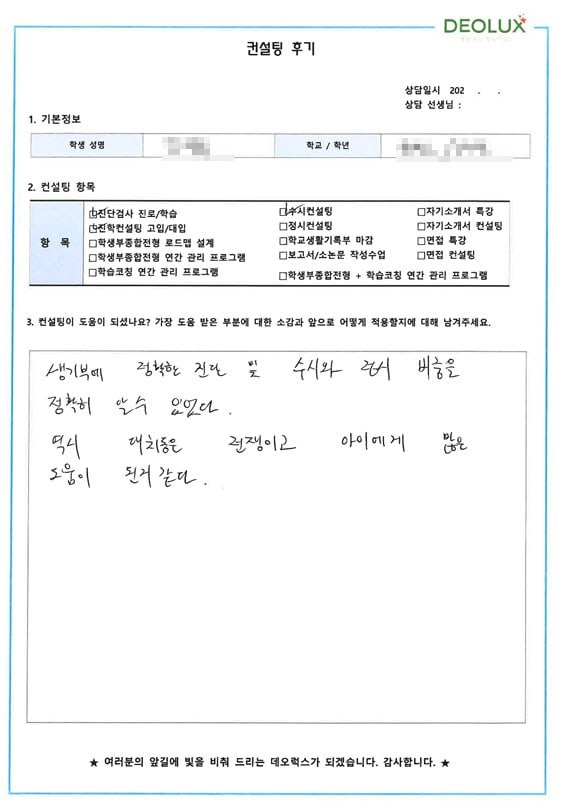 DEOLUX
컨설팅 후기
상담일시 202 . .
상담 선생님 :
1. 기본정보
학생 성명 학교 / 학년
2. 컨설팅 항목
항 목
☑진단검사 진로/학습 ☑수시컨설팅 □자기소개서 특강
☑진학컨설팅 고입/대입 □정시컨설팅 □자기소개서 컨설팅
□학생부종합전형 로드맵 설계 □학교생활기록부 마감 □면접 특강
□학생부종합전형 연간 관리 프로그램 □보고서/소논문 작성수업 □면접 컨설팅
□학습코칭 연간 관리 프로그램 □학생부종합전형 + 학습코칭 연간 관리 프로그램
3. 컨설팅이 도움이 되셨나요? 가장 도움 받은 부분에 대한 소감과 앞으로 어떻게 적용할지에 대해 남겨주세요.
생기부에 정확한 진단 및 수시와 정시 비중을
정확히 알수 있었다.
역시 대치동은 전쟁이고 아이에게 많은
도움이 된거 같다.
★ 여러분의 앞길에 빛을 비춰 드리는 데오럭스가 되겠습니다. 감사합니다. ★